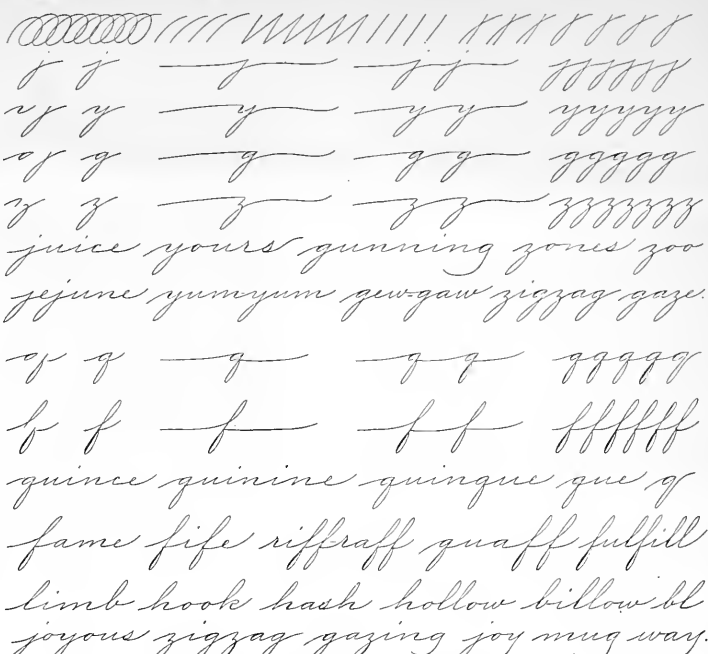 j j j j j jjjjjj
y y y y y yyyyy
g g g g g ggggg
z z z z z zzzzzzz
juice yours gunning zones zoo
jejune yumyum gew-gaw zigzag gaze.
q q q q q qqqqq
f f f f f ffffff
quince quinine quinque que q
fame fife riffraff quaff fulfill
limb hook hash hollow billow bl
joyous zigzag gazing joy mug way.